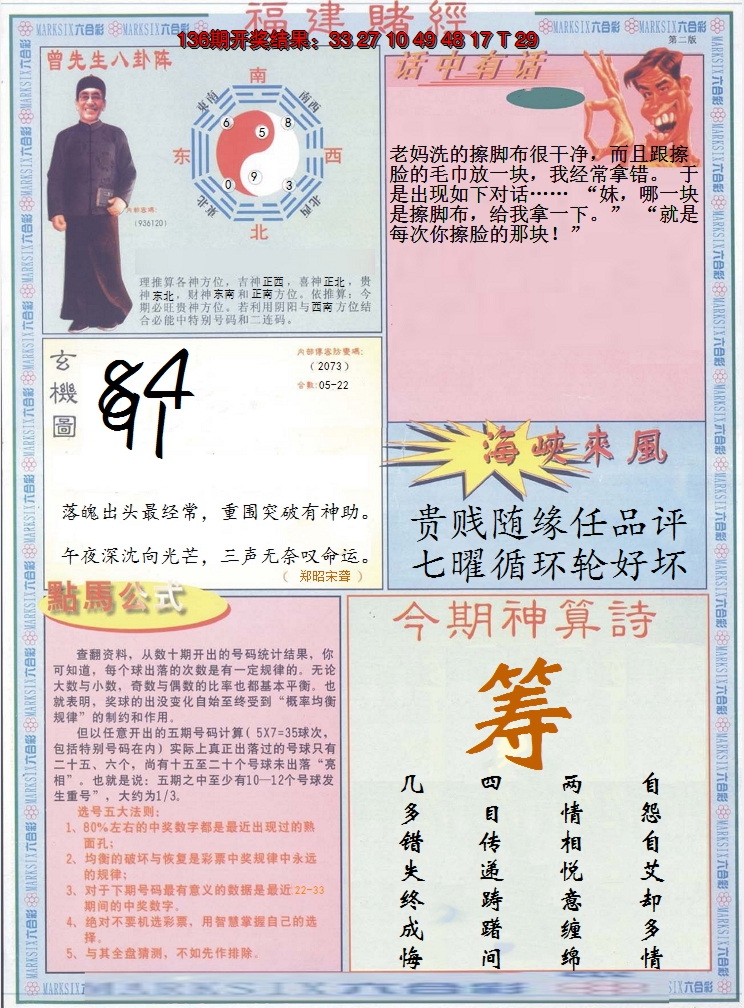 福建賭經
136期开奖结果：33 27 10 49 48 17 T 29
MARKSIX六合彩 MARKSIX六合彩 MARKSIX六合彩 MARKSIX六合彩
第二版
曾先生八卦阵
南
东南
南西
6
5
8
东
西
0
9
3
东北
北西
北
内部密碼：
（936120）
理推算各神方位，吉神正西，喜神正北，贵
神东北，财神东南和正南方位。依推算：今
期必旺贵神方位。若利用阴阳与西南方位结
合必能中特别号码和二连码。
话中有话
老妈洗的擦脚布很干净，而且跟擦
脸的毛巾放一块，我经常拿错。 于
是出现如下对话…… “妹，哪一块
是擦脚布，给我拿一下。” “就是
每次你擦脸的那块！”
玄機圖
84
91
内部傳密防變碼：
（2073）
合數:05-22
落魄出头最经常，重围突破有神助。
午夜深沈向光芒，三声无奈叹命运。
（ 郑昭宋聋 ）
海峽來風
贵贱随缘任品评
七曜循环轮好坏
點馬公式
查翻资料，从数十期开出的号码统计结果，你
可知道，每个球出落的次数是有一定规律的。无论
大数与小数，奇数与偶数的比率也都基本平衡。也
就表明，奖球的出没变化自始至终受到“概率均衡
规律”的制约和作用。
但以任意开出的五期号码计算（5X7=35球次，
包括特别号码在内）实际上真正出落过的号球只有
二十五、六个，尚有十五至二十个号球未出落“亮
相”。也就是说：五期之中至少有10—12个号球发
生重号”，大约为1/3。
选号五大法则：
1、80%左右的中奖数字都是最近出现过的熟
面孔；
2、均衡的破坏与恢复是彩票中奖规律中永远
的规律；
3、对于下期号码最有意义的数据是最近22-33
期间的中奖数字。
4、绝对不要机选彩票，用智慧掌握自己的选
择。
5、与其全盘猜测，不如先作排除。
今期神算詩
筹
自怨自艾却多情
两情相悦意缠绵
四目传递踌躇间
几多错失终成悔